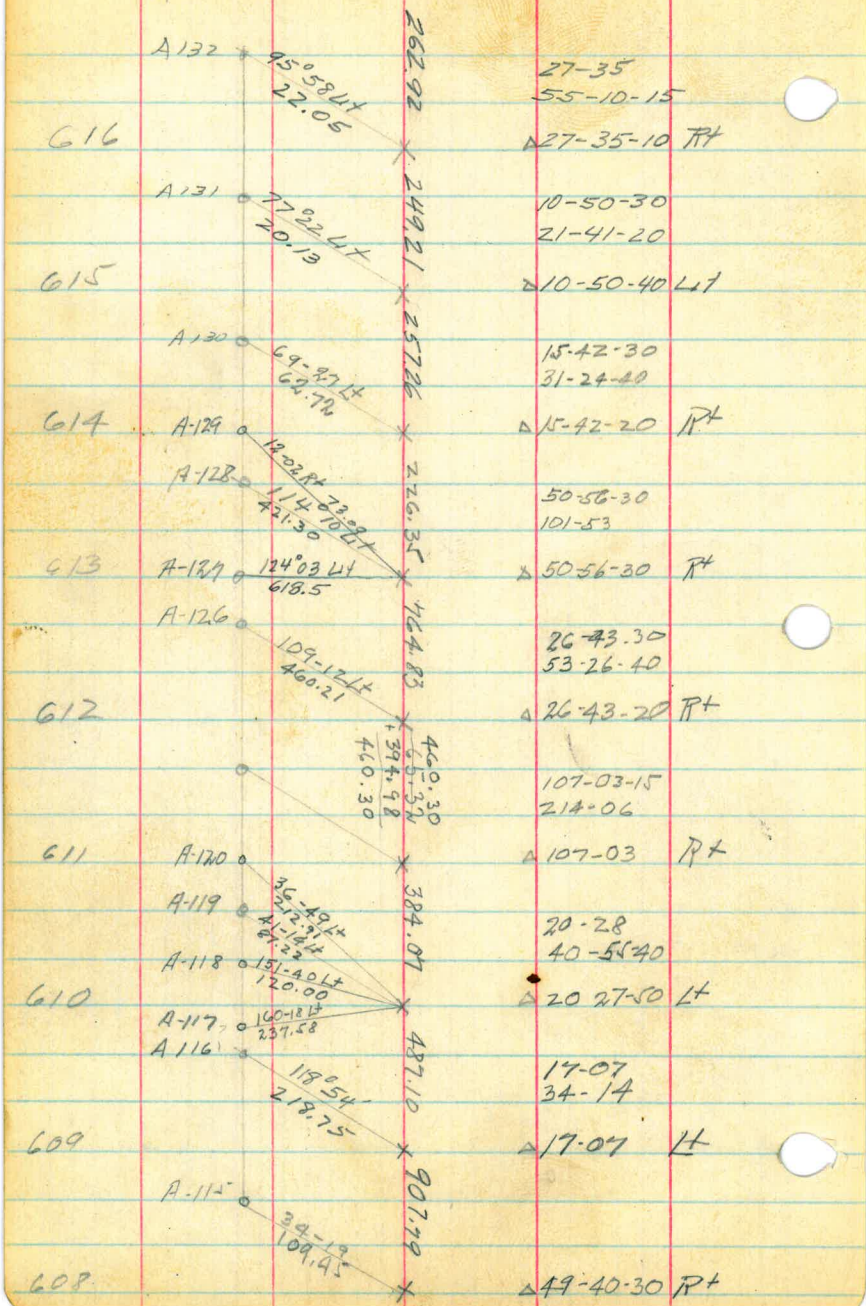 262.92
A132
95°58 Lt
22.05
27-35
55-10-15
616
Δ 27-35-10 Rt
A131
77°22 Lt
20.13
249.21
10-50-30
21-41-20
615
Δ 10-50-40 Lt
A130
69-27 Lt
62.72
257.26
15-42-30
31-24-40
614
A-129
Δ 15-42-20 Rt
12-02 Rt
73.09
A-128
114°10 Lt
421.30
226.35
50-56-30
101-53
613
A-127
124°03 Lt
618.5
Δ 50-56-30 Rt
A-126
109-12 Lt
460.21
764.83
26-43.30
53-26-40
612
Δ 26-43-20 Rt
460.30
65.32
+394.98
460.30
107-03-15
214-06
611
A-120
Δ 107-03 Rt
36-49 Lt
212.91
A-119
41-14 Lt
87.22
384.07
20-28
40-55-40
A-118
151-40 Lt
120.00
610
Δ 20 27-50 Lt
A-117
160-18 Lt
237.58
A116
118°54
218.75
487.10
17-07
34-14
609
Δ 17-07 Lt
A-115
34-19
109.45
907.79
608
Δ 49-40-30 Rt